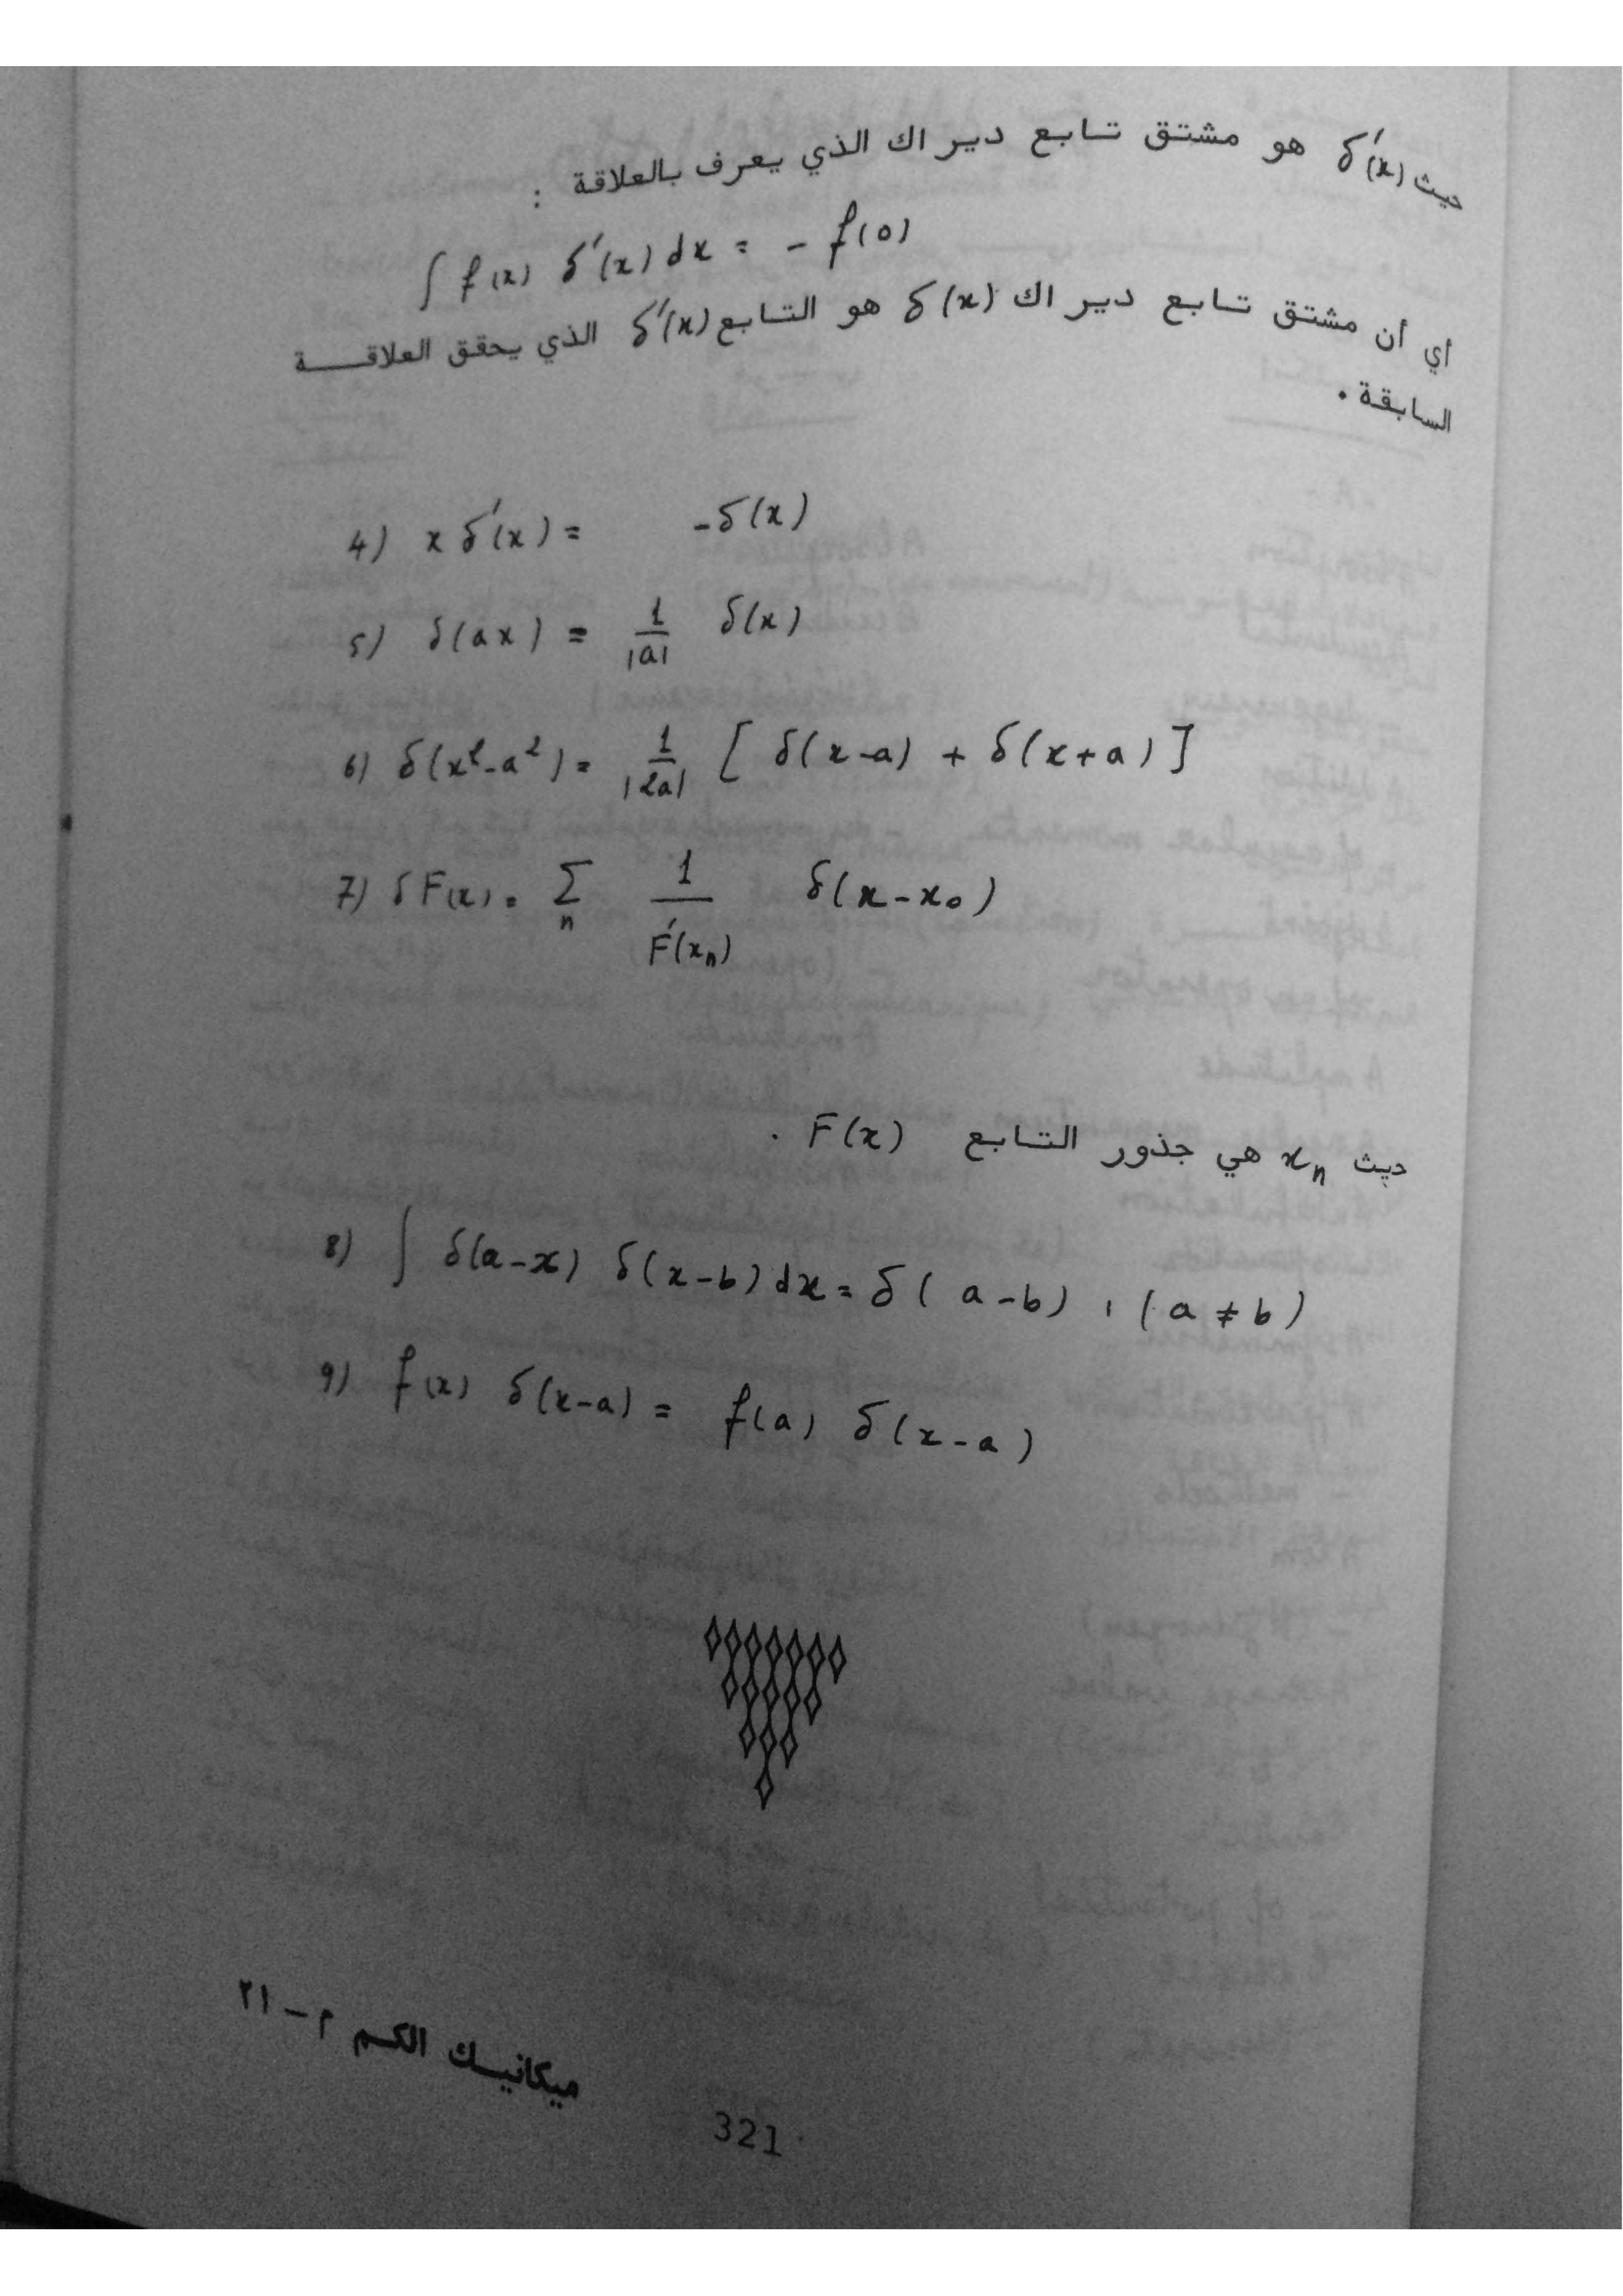 حيث δ′(x) هو مشتق تابع ديراك الذي يعرف بالعلاقة :
∫ f(x) δ′(x) dx = - f(0)
أي أن مشتق تابع ديراك δ(x) هو التابع δ′(x) الذي يحقق العلاقة
السابقة .
4) x δ′(x) = -δ(x)
5) δ(ax) = 1/|a| δ(x)
6) δ(x²-a²) = 1/|2a| [ δ(x-a) + δ(x+a) ]
7) δ F(x) = Σ_n 1/F′(x_n) δ(x-x₀)
حيث x_n هي جذور التابع F(x) .
8) ∫ δ(a-x) δ(x-b) dx = δ( a-b) , ( a ≠ b )
9) f(x) δ(x-a) = f(a) δ(x-a)
ميكانيك الكم م - ٢١
321